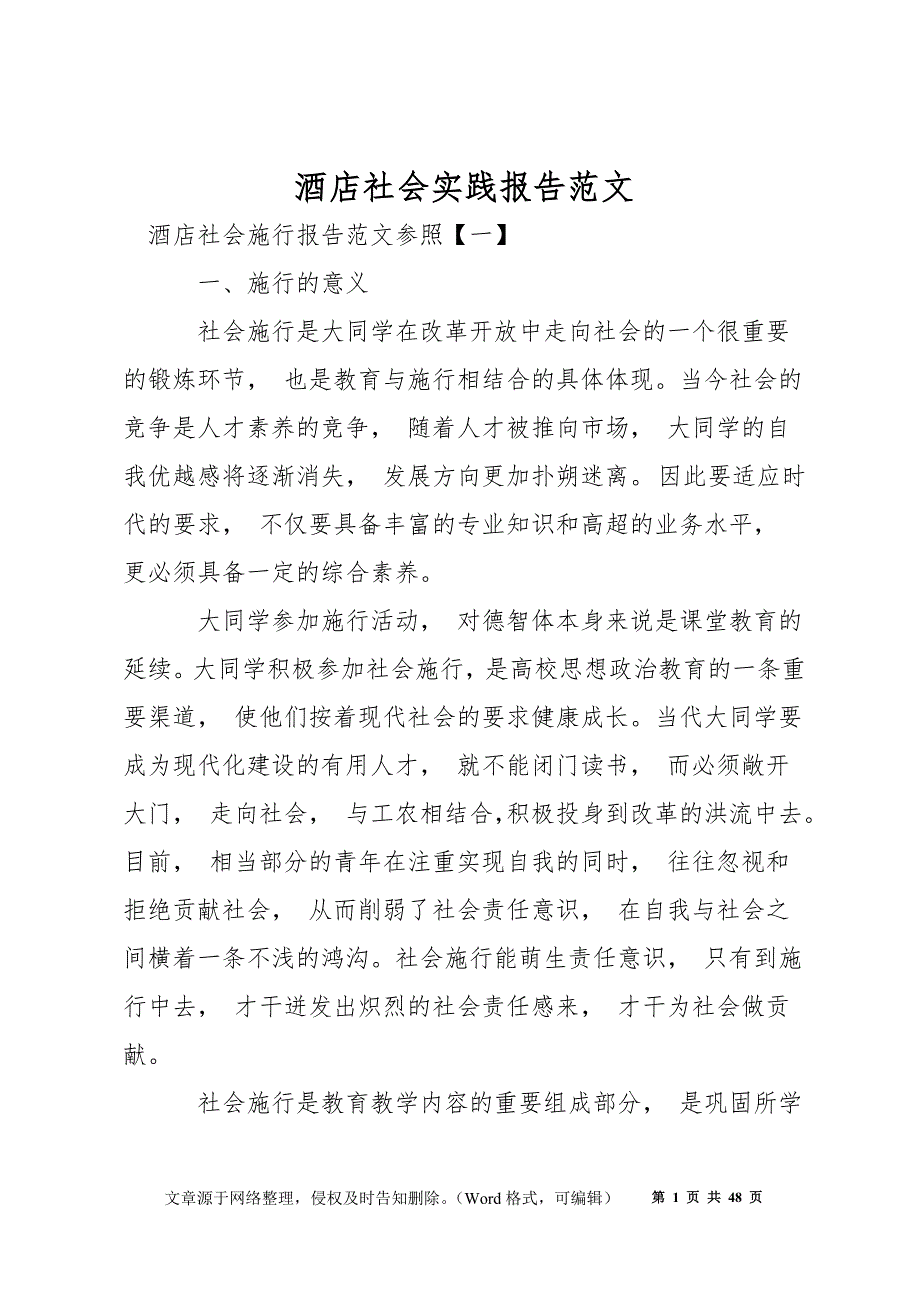 酒店社会实践报告范文
酒店社会施行报告范文参照【一】
一、施行的意义
社会施行是大同学在改革开放中走向社会的一个很重要
的锻炼环节， 也是教育与施行相结合的具体体现。当今社会的
竞争是人才素养的竞争， 随着人才被推向市场， 大同学的自
我优越感将逐渐消失， 发展方向更加扑朔迷离。因此要适应时
代的要求， 不仅要具备丰富的专业知识和高超的业务水平，
更必须具备一定的综合素养。
大同学参加施行活动， 对德智体本身来说是课堂教育的
延续。大同学积极参加社会施行，是高校思想政治教育的一条重
要渠道， 使他们按着现代社会的要求健康成长。当代大同学要
成为现代化建设的有用人才， 就不能闭门读书， 而必须敞开
大门， 走向社会， 与工农相结合，积极投身到改革的洪流中去。
目前， 相当部分的青年在注重实现自我的同时， 往往忽视和
拒绝贡献社会， 从而削弱了社会责任意识， 在自我与社会之
间横着一条不浅的鸿沟。社会施行能萌生责任意识， 只有到施
行中去， 才干迸发出炽烈的社会责任感来， 才干为社会做贡
献。
社会施行是教育教学内容的重要组成部分， 是巩固所学
文章源于网络整理，侵权及时告知删除。（Word 格式，可编辑） 第 1 页 共 48 页